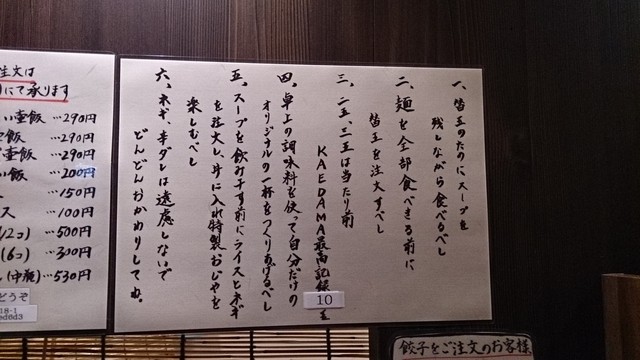 一、替玉のためにスープを
残しながら食べるべし
二、麺を全部食べきる前に
替玉を注文すべし
三、二玉、三玉は当たり前
KAEDAMA最高記録10玉
四、卓上の調味料を使って自分だけの
オリジナルの一杯をつくりあげるべし
五、スープを飲み干す前にライスとネギ
を注文し、丼に入れ特製おじやを
楽しむべし
六、ネギ、辛ダレは遠慮しないで
どんどんおかわりしてね。
注文は
にて承ります
い壷飯 …290円
飯 …290円
壷飯 …290円
い飯 …200円
…150円
ス …100円
2コ) …500円
(6コ) …300円
(中瓶) …530円
どうぞ
餃子をご注文のお客様